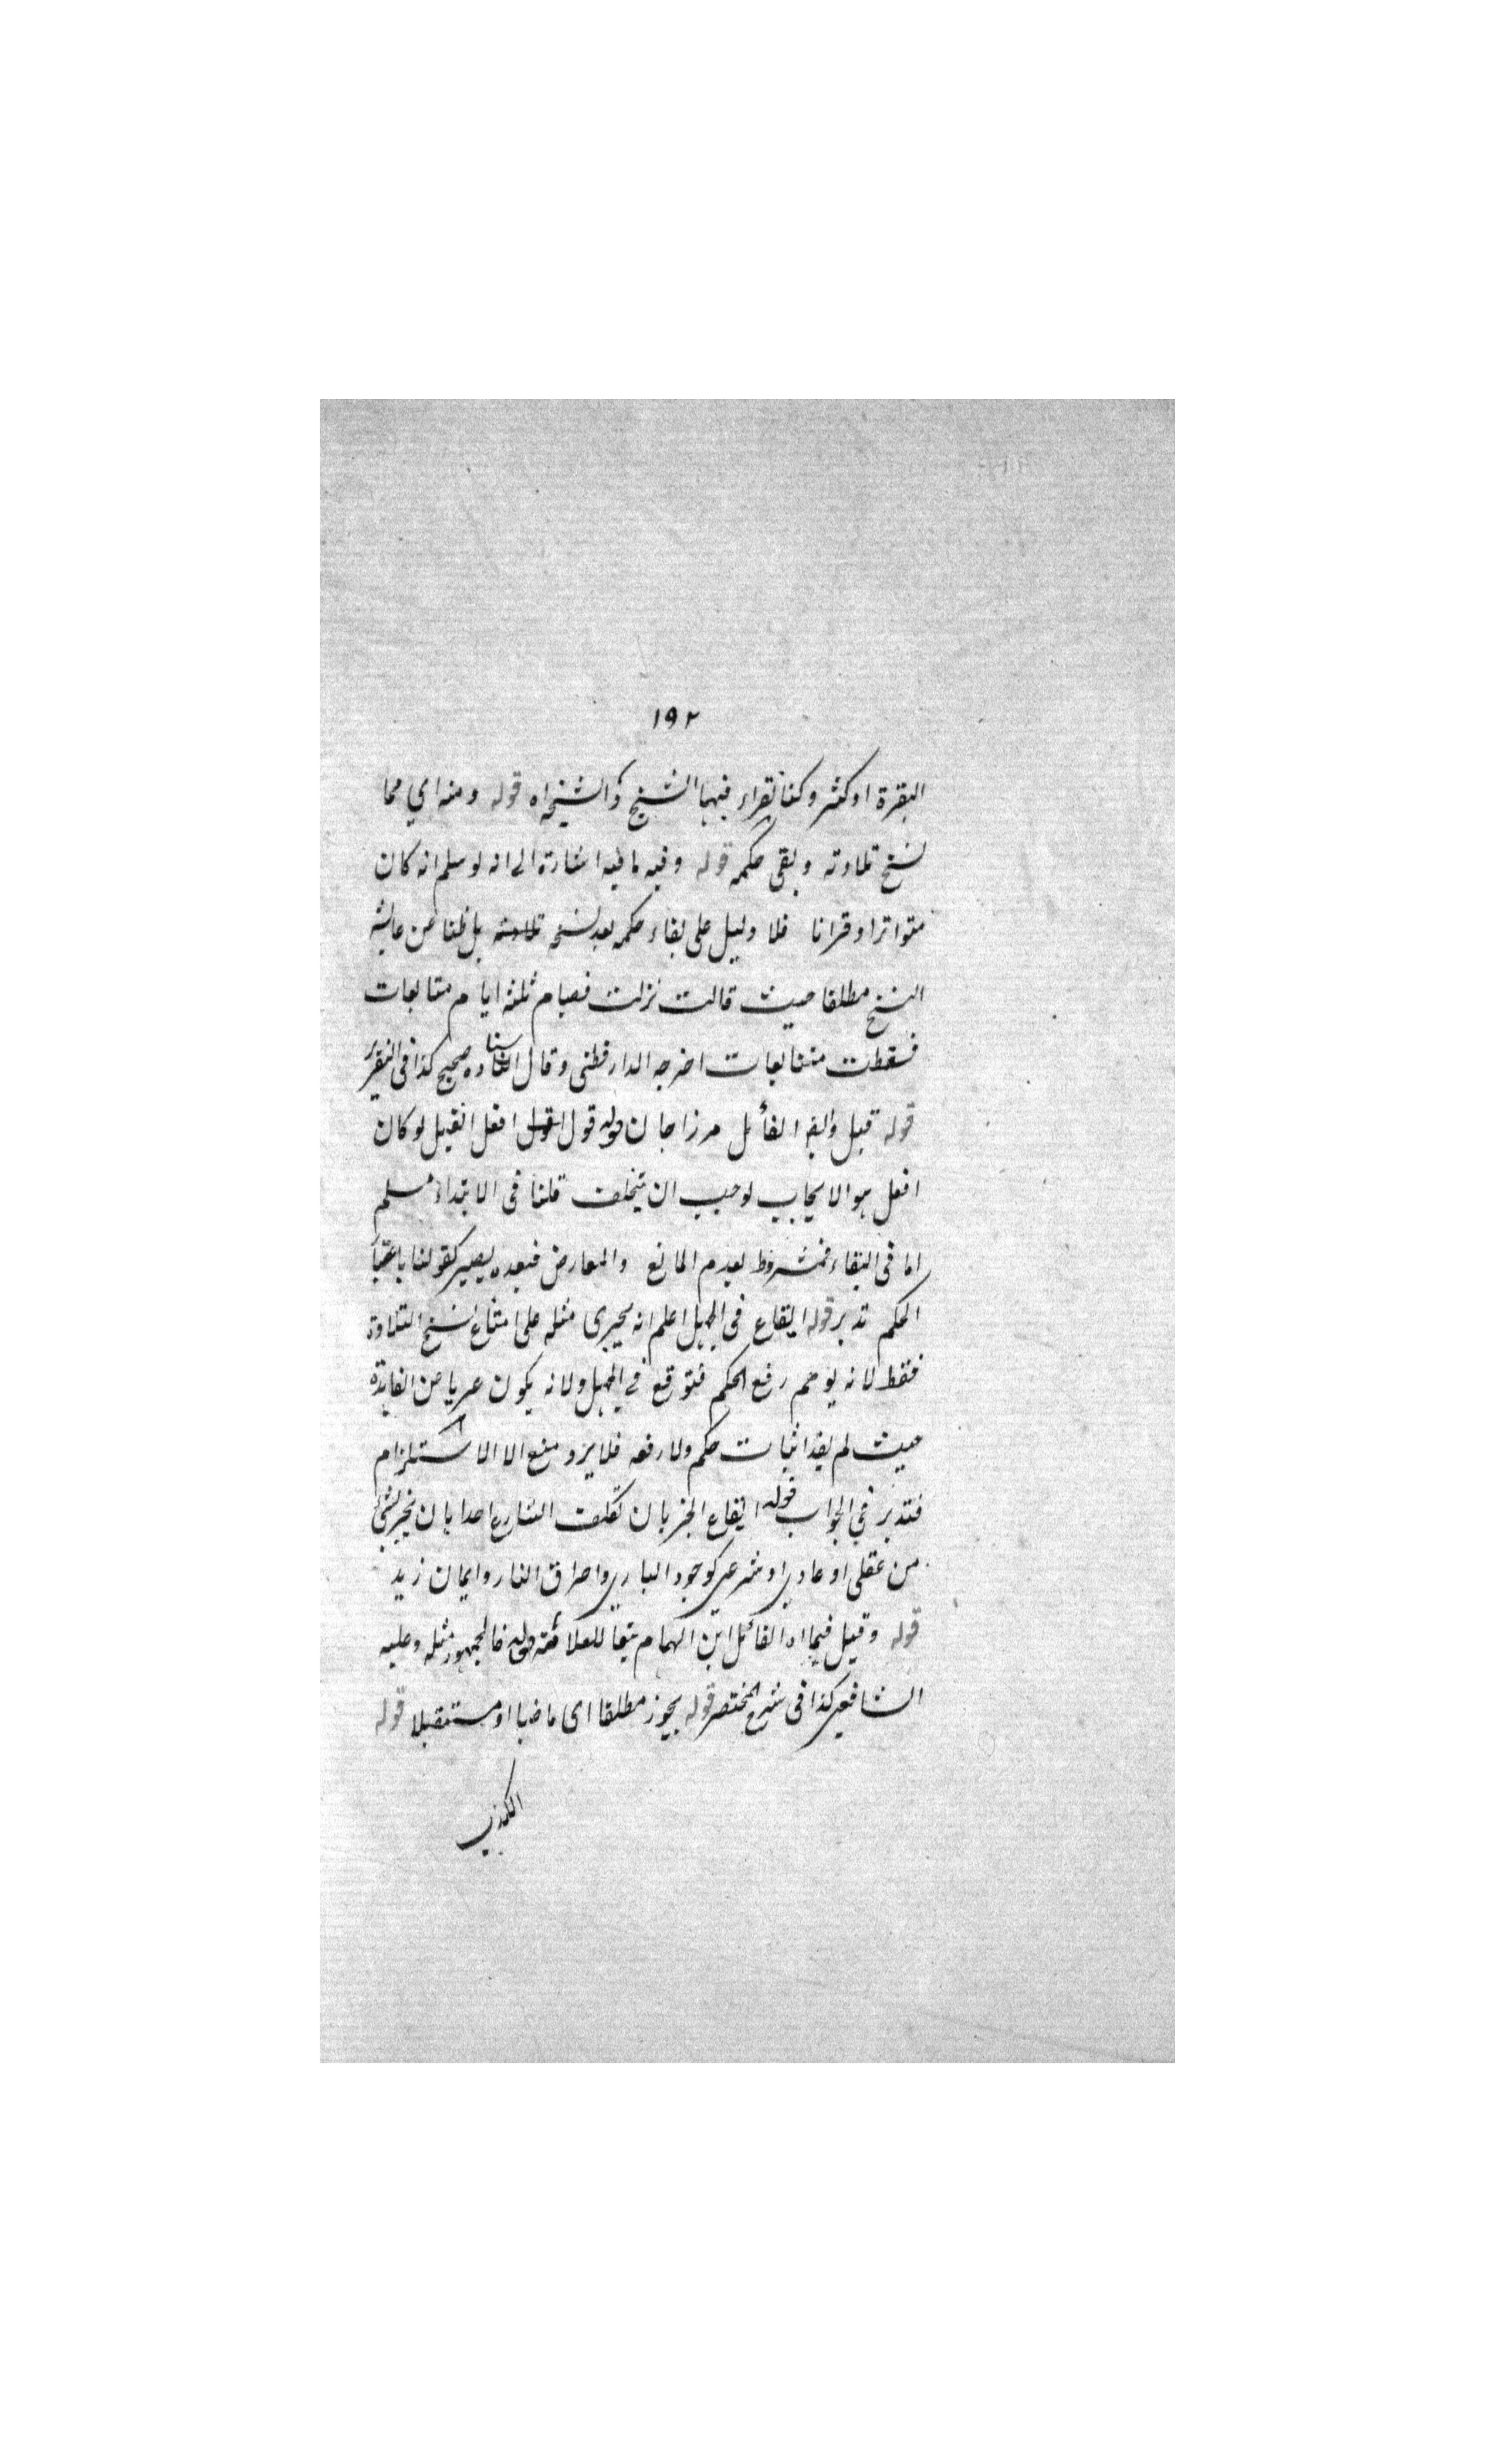 ١٩٢
البقرة او كثر وكنا نقراء فيها الشيخ والشيخة اه قوله ومنه اي مما
نسخ تلاوته وبقى حكمه قوله وفيه ما فيه اشارة الى انه لو سلم انه كان
متواترا وقرانا فلا دليل على بقاء حكمه بعد نسخ تلاوته بل ظنا عن عايشة
النسخ مطلقا حيث قالت نزلت فصيام ثلثة ايام متتابعات
فسقطت متتابعات اخرجه الدارقطنى وقال اسناده صحيح كذا فى التقرير
قوله قيل القائل مرزا جان قوله قول افعل القيل لو كان
افعل هو الايجاب لوجب ان يتخلف قلنا فى الابتداء مسلم
اما فى البقاء فمشروط بعدم المانع والمعارض فبعده يصير كقولنا باعتبار
الحكم تدبر قوله ايقاع فى الجهل اعلم انه يجرى مثله على امتناع نسخ التلاوة
فقط لانه يوهم رفع الحكم فتوقع في الجهل ولانه يكون عريا عن الفايدة
حيث لم يفد اثبات حكم ولا رفعه فلا يرد منع الا الاستلزام
فتدبر في الجواب قوله ايقاع الخبر بان تكلف الشارع احدا بان يخبر بشئ
من عقلى او عادي او شرعي كوجود الباري واحراق النار وايمان زيد
قوله وقيل فيما اه القائل ابن الهمام تبعا للعلامة قوله فالجمهور مثله وعليه
الشافعي كذا فى شرح المختصر قوله يجوز مطلقا اى ماضيا او مستقبلا قوله
الكذب